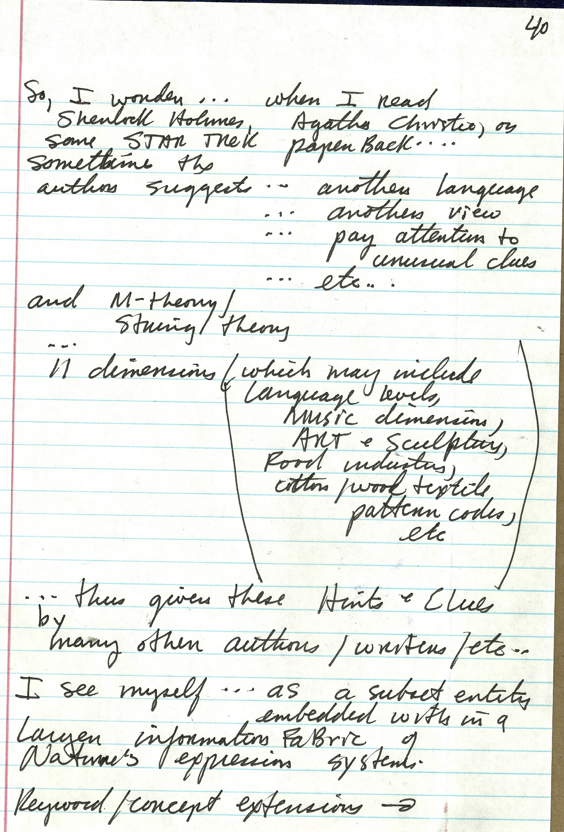 40
So, I wonder ... when I read
Sherlock Holmes, Agatha Christie, or
some STAR TReK paperBack....
sometime the
authors suggests ... another language
... anothers view
... pay attention to
unusual clues
... etc...
and M-theory/
String/theory
...
11 dimensions (which may include
language levels,
Music dimension,
ART & Sculpture,
Food industry,
cotton/wool, textile
pattern codes,
etc
... thus given these Hints & Clues
by
many other authors / writers / etc..
I see myself ... as a subset entity
embedded with in a
Larger information FaBric of
Nature's expression systems.
Keyword/concept extensions →